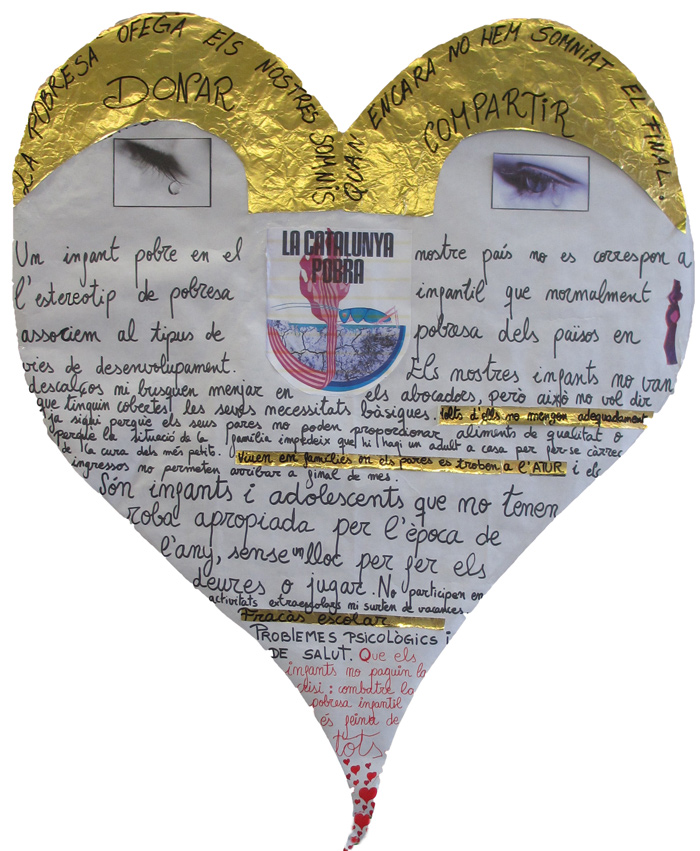 LA POBRESA OFEGA ELS NOSTRES SOMNIS
QUAN ENCARA NO HEM SOMNIAT EL FINAL.
DONAR
COMPARTIR
LA CATALUNYA
POBRA
Un infant pobre en el nostre país no es correspon a
l'estereotip de pobresa infantil que normalment
associem al tipus de pobresa dels països en
vies de desenvolupament. Els nostres infants no van
descalços ni busquen menjar en els abocadors, però això no vol dir
que tinguin cobertes les seves necessitats bàsiques. Molts d'ells no mengen adequadament
ja sigui perquè els seus pares no poden proporcionar aliments de qualitat o
perquè la situació de la família impedeix que hi hagi un adult a casa per fer-se càrrec
de la cura dels més petit. Viuen en famílies on els pares es troben a l'ATUR i els
ingressos no permeten arribar a final de mes.
Són infants i adolescents que no tenen
roba apropiada per l'època de
l'any, sense un lloc per fer els
deures o jugar. No participen en
activitats extraescolars ni surten de vacances.
Fracàs escolar
PROBLEMES PSICOLÒGICS i
DE SALUT. Que els
infants no paguin la
crisi: combatre la
pobresa infantil
és feina de
tots